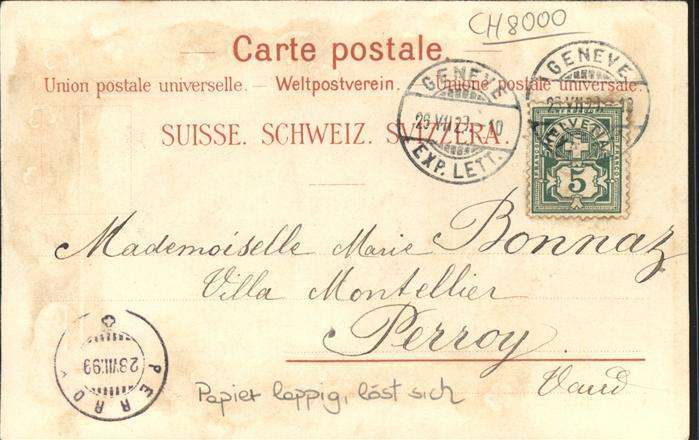 CH8000
Carte postale
Union postale universelle. — Weltpostverein. — Unione postale universale.
SUISSE. SCHWEIZ. SVIZZERA.
GENEVE
EXP. LETT.
GENEVE
HELVETIA
5
Mademoiselle Marie Bonnaz
Villa Montellier
Perroy
Vaud
PERROY
Papier lappig, löst sich